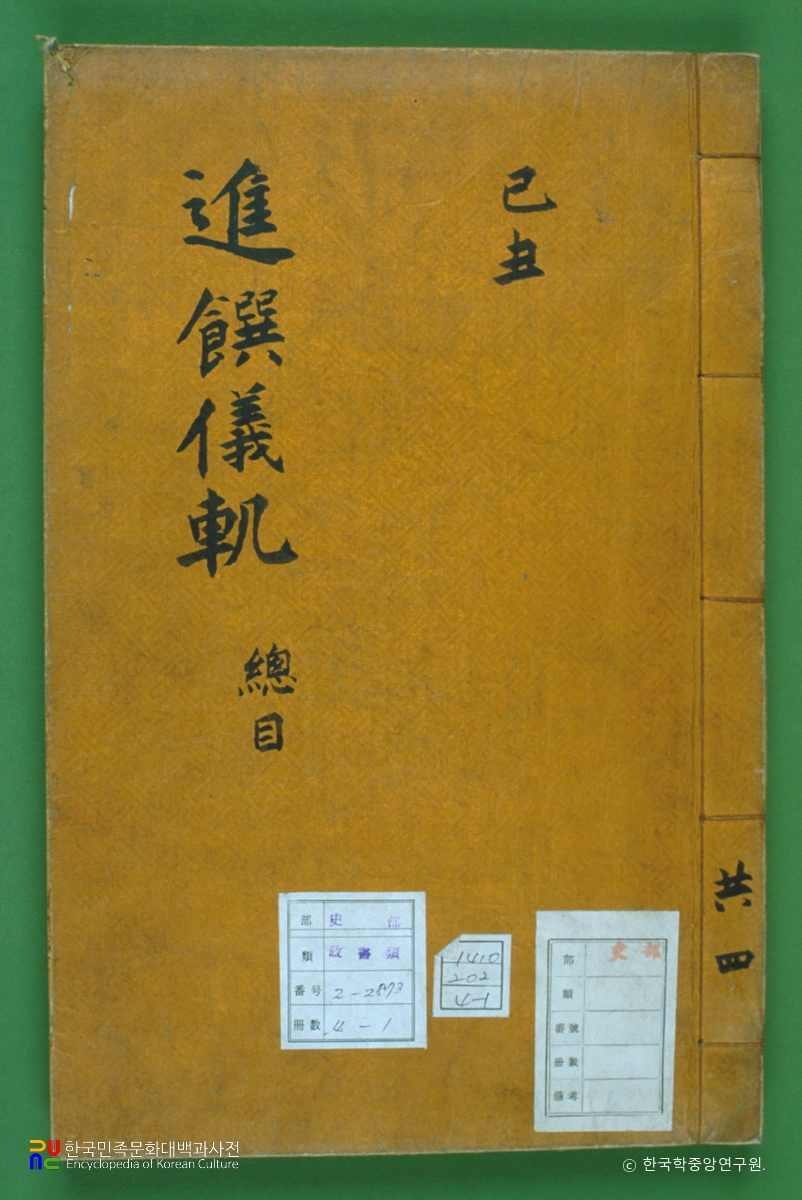 己丑
進饌儀軌
總目
共四
部 史 部
類 政書類
番号 2-2873
冊數 4-1
1410
202
4-1
部 史部
類
番號
冊數
備考
한국민족문화대백과사전
Encyclopedia of Korean Culture
© 한국학중앙연구원.